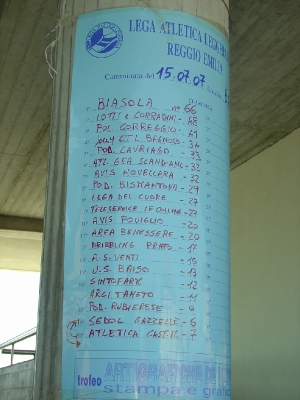 LEGA ATLETICA LEGGERA
REGGIO EMILIA
Camminata del 15.07.07
BIASOLA n° 66
LOTTI e CORRADINI - 48
POL CORREGGIO - 41
JOLLY C.T.L. BAGNOLO - 34
POD. CAVRIAGO - 33
ATL. GEA SCANDIANO - 32
AVIS NOVELLARA - 32
POD. BISMANTOVA - 29
LEGA DEL CUORE - 27
TELESERVICE IF ONLINE - 27
AVIS POVIGLIO - 20
AREA BENESSERE - 20
DRIBBLING PRATO - 17
A.S. VENTI - 15
U.S. BAISO - 13
SINTOFARM - 12
ARCI TANETO - 11
POD. RUBIERESE - 9
SEDOL GAZZELLE - 6
ATLETICA CASTE - 7
trofeo ARTIGRAFICHE DE
stampa e grafic